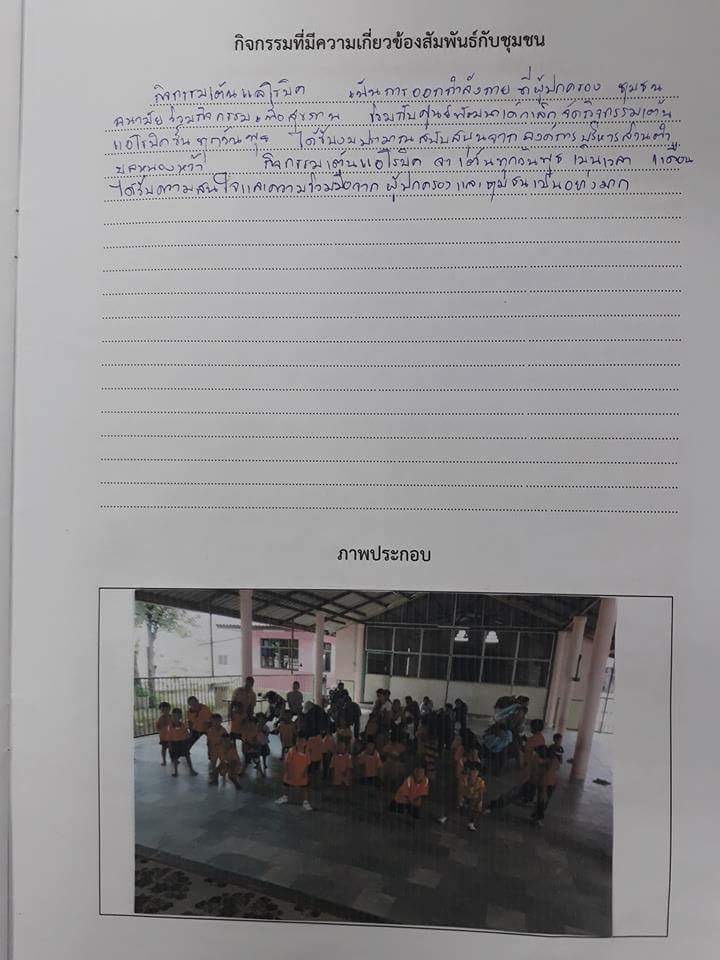 กิจกรรมที่มีความเกี่ยวข้องสัมพันธ์กับชุมชน
กิจกรรมเต้นแอโรบิค เป็นการออกกำลังกาย ที่ผู้ปกครอง ชุมชน
อนามัย ร่วมกิจกรรมเพื่อสุขภาพ ร่วมกับศูนย์พัฒนาเด็กเล็ก จัดกิจกรรมเต้น
แอโรบิกขึ้น ทุกวันพุธ ได้รับงบประมาณสนับสนุนจาก องค์การบริหารส่วนตำ
บลหนองหว้า กิจกรรมเต้นแอโรบิค จะเต้นทุกวันพุธ เป็นเวลา 1 เดือน
ได้รับความสนใจและความร่วมมือจาก ผู้ปกครองและชุมชนเป็นอย่างมาก
ภาพประกอบ